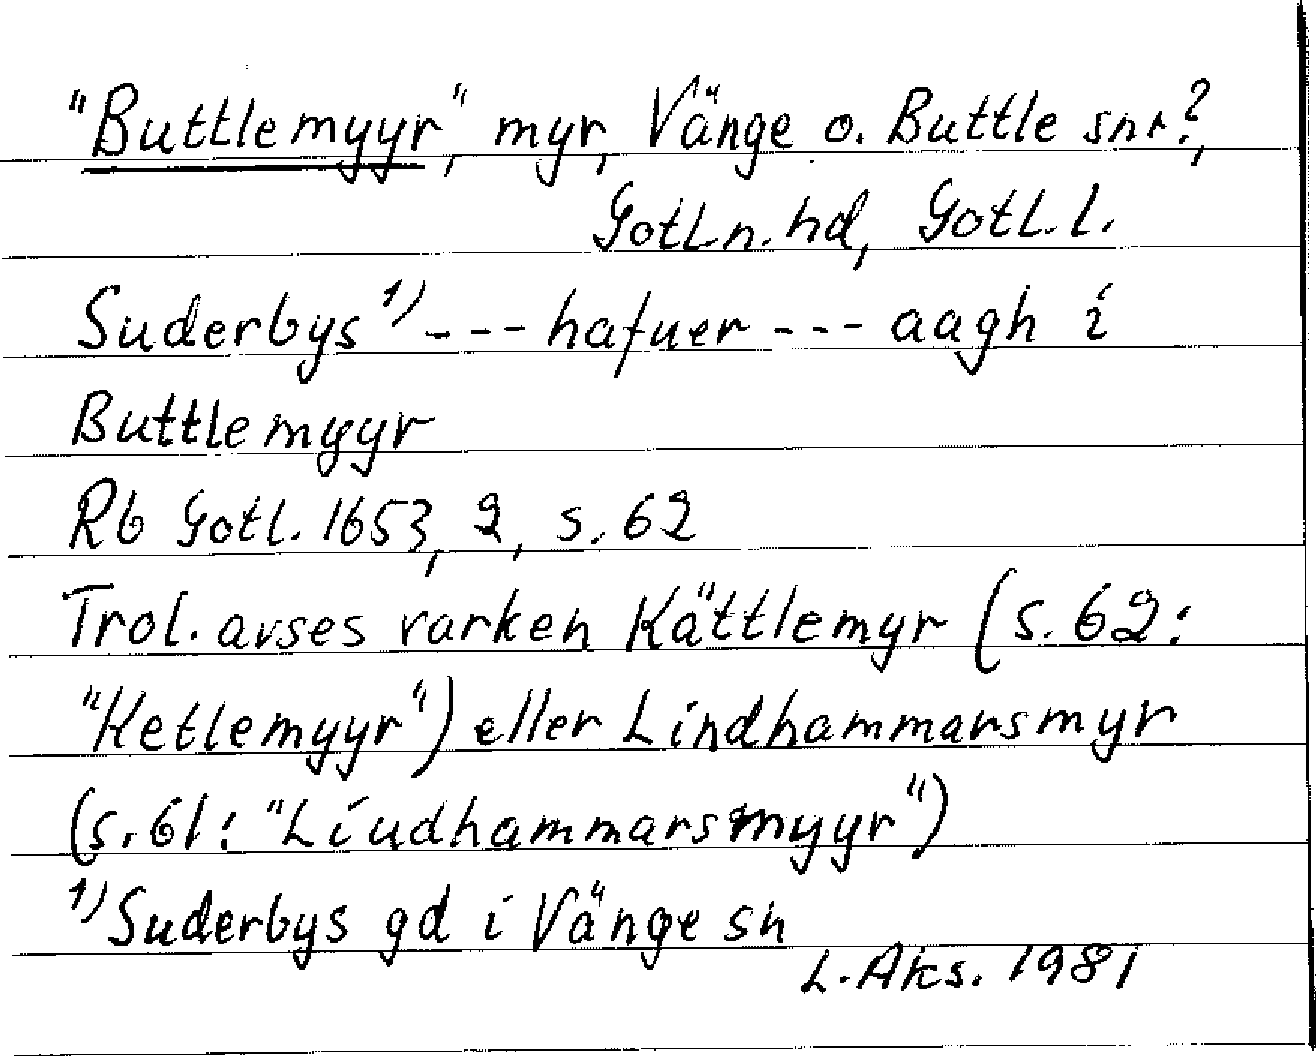 "Buttlemyyr", myr, Vänge o. Buttle snr?,
Gotl.n. hd, Gotl. l.
Suderbys 1) --- hafuer --- aagh i
Buttlemyyr
Rb Gotl. 1653, 2, s. 62
Trol. avses varken Kättlemyr (s. 62:
"Ketlemyyr") eller Lindhammarsmyr
(s. 61: "Liudhammarsmyyr")
1) Suderbys gd i Vänge sn
L. Aks. 1981